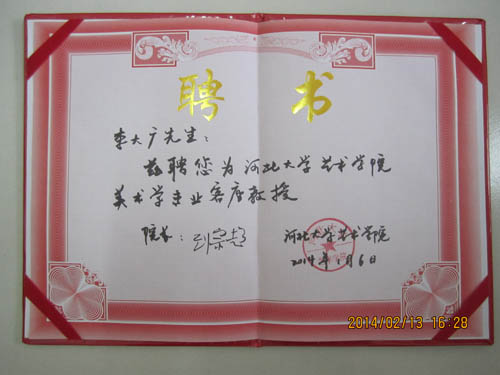 聘 书
李大广先生：
兹聘您为河北大学艺术学院
美术学专业客座教授
院长：刘宗超
河北大学艺术学院
2014年1月6日
2014/02/13 16:28